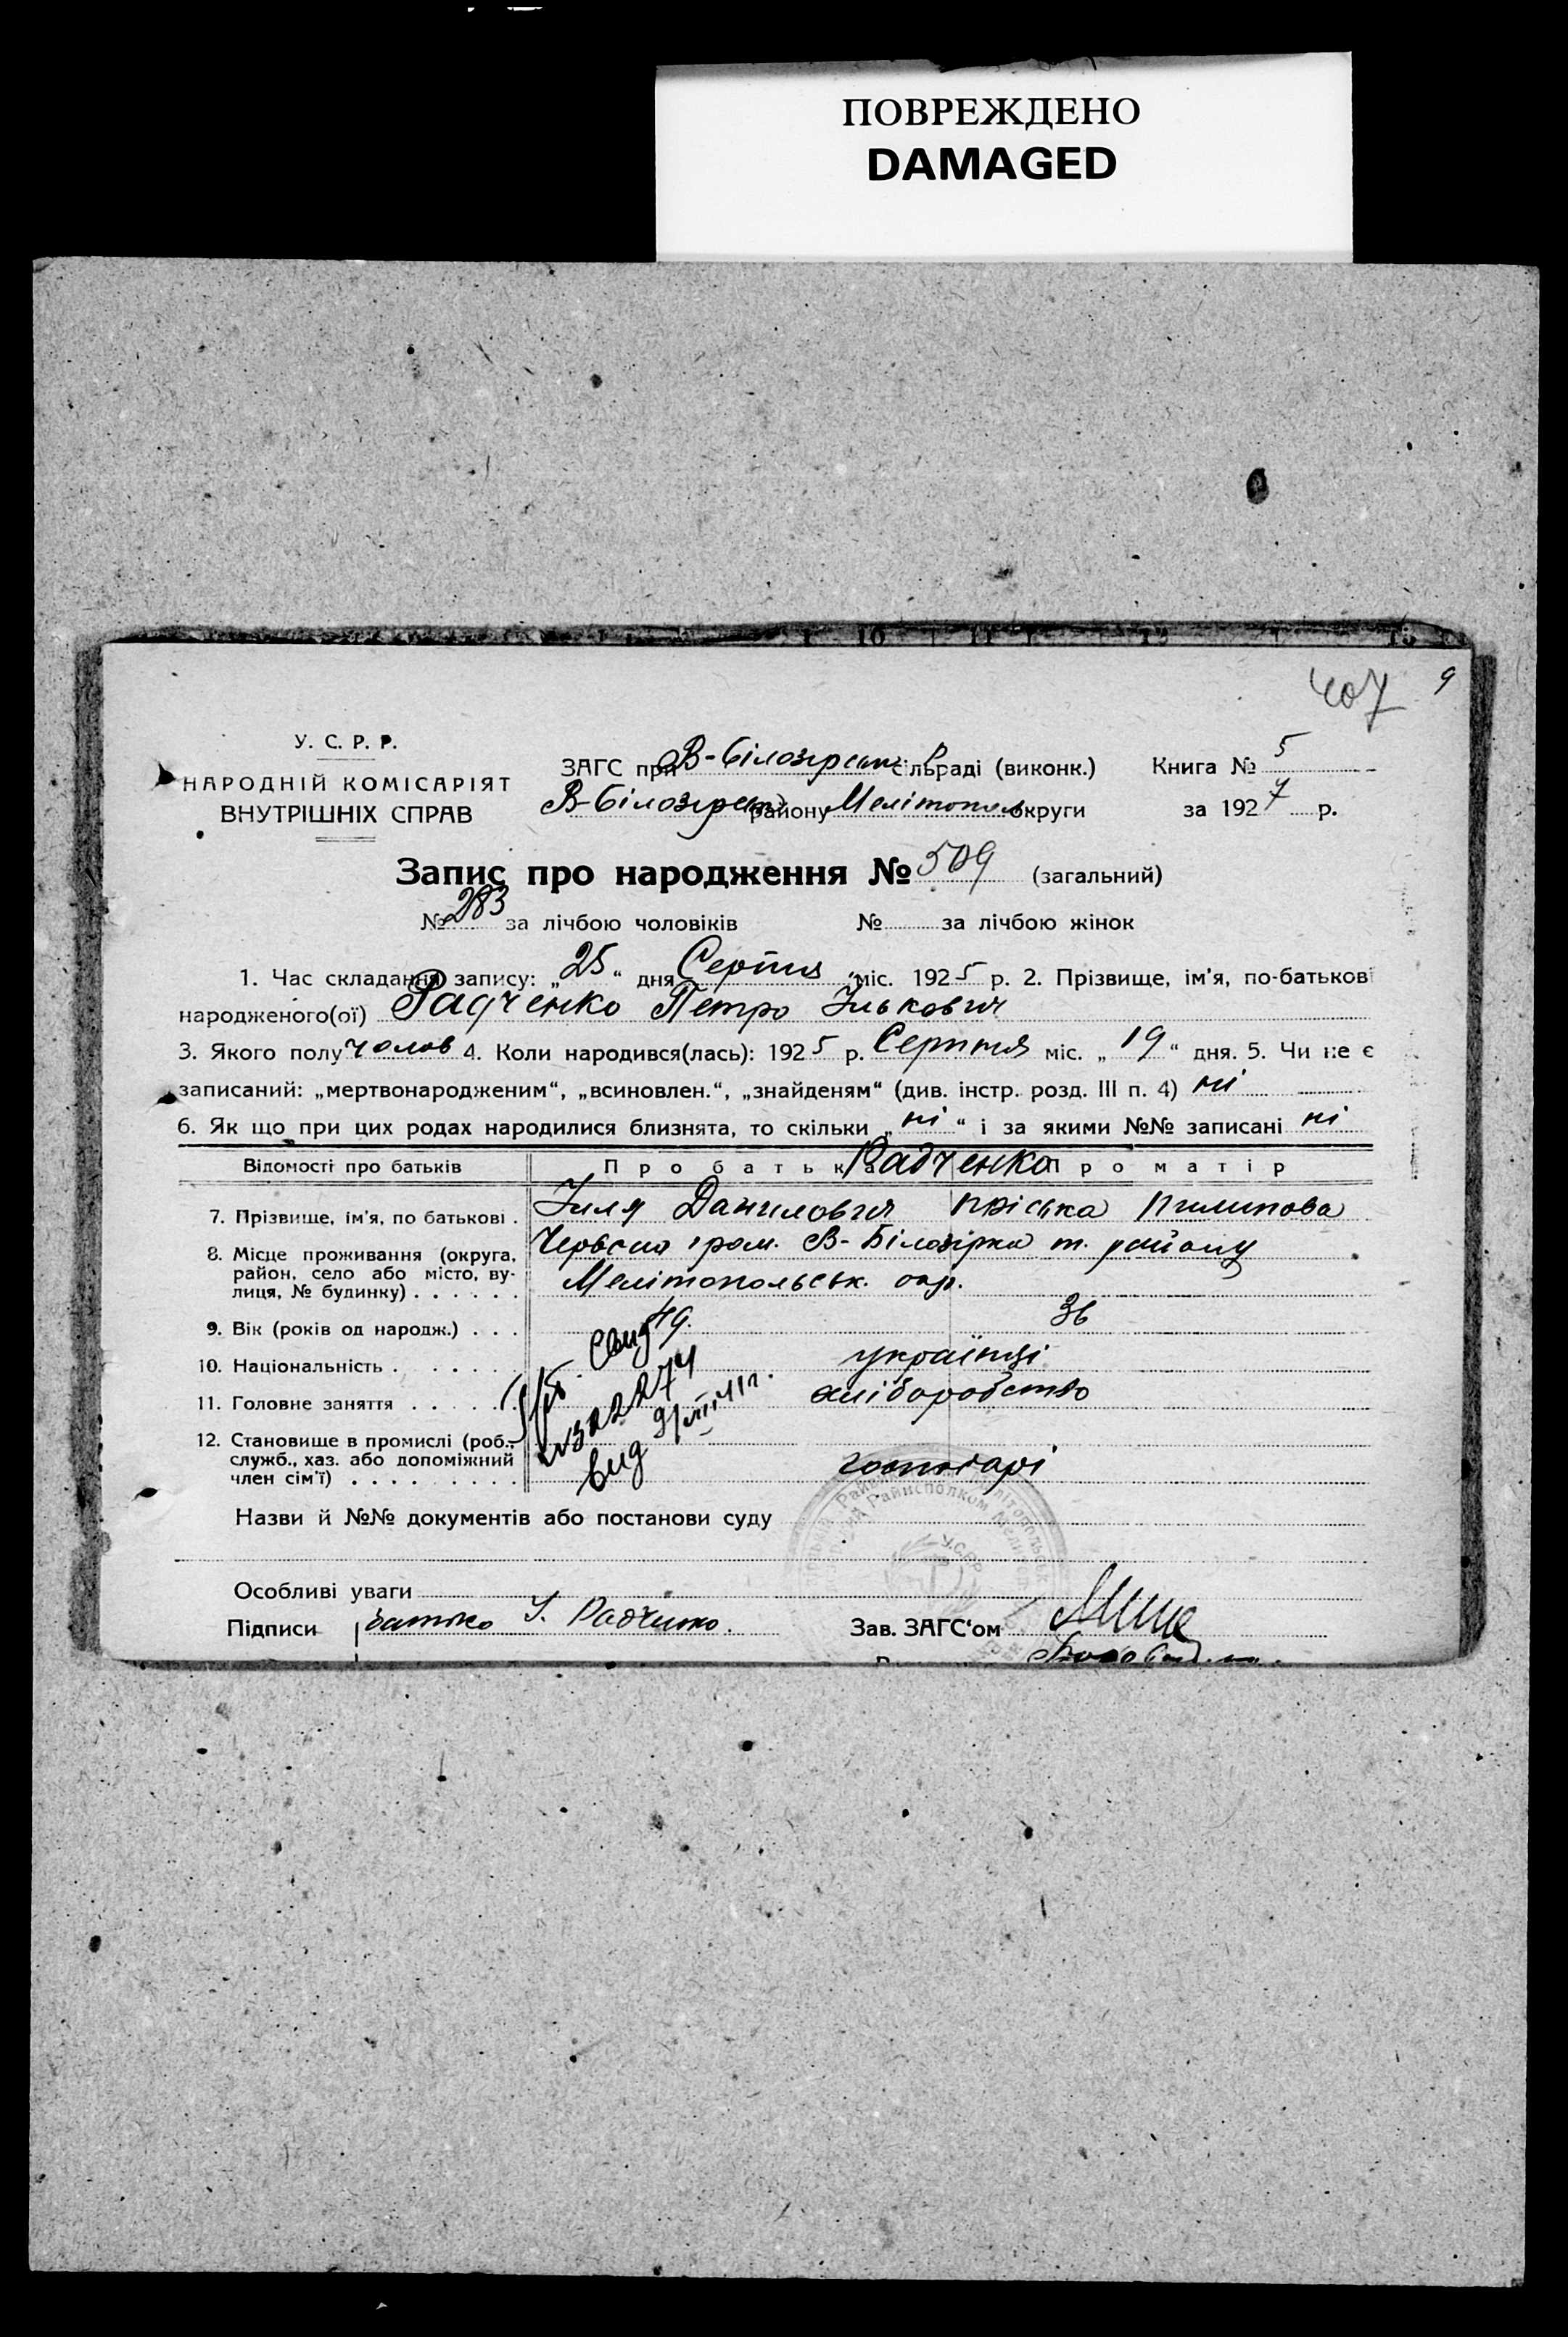 ПОВРЕЖДЕНО
DAMAGED
407 9
У. С. Р. Р.
НАРОДНІЙ КОМІСАРІЯТ
ВНУТРІШНІХ СПРАВ
ЗАГС при В-Білозірськ. сільраді (виконк.)
В-Білозірськ району Мелітополь округи
Книга № 5
за 1927 р.
Запис про народження № 509 (загальний)
№ 283 за лічбою чоловіків № за лічбою жінок
1. Час складання запису: „25“ дня Серпня міс. 1925 р. 2. Прізвище, ім'я, по-батькові
народженого(ої) Радченко Петро Ількович
3. Якого полу чолов 4. Коли народився(лась): 1925 р. Серпня міс. „19“ дня. 5. Чи не є
записаний: „мертвонародженим“, „всиновлен.“, „знайденям“ (див. інстр. розд. III п. 4) ні
6. Як що при цих родах народилися близнята, то скільки „ні“ і за якими №№ записані ні
Відомості про батьків Про батька Радченко Про матір
7. Прізвище, ім'я, по батькові . Ілля Данилович Пріська Пилипова
8. Місце проживання (округа, Червона гром. В-Білозірка т. району
район, село або місто, ву-
лиця, № будинку) . . . . . . Мелітопольськ. окр.
9. Вік (років од народж.) . . . 49. 36
10. Національність . . . . . . українці
11. Головне заняття . . . . . . хліборобство
12. Становище в промислі (роб.,
служб., хаз. або допоміжний
член сім'ї) . . . . . . . . . господарі
вид
Назви й №№ документів або постанови суду
У.С.Р.Р.
Особливі уваги
Підписи батько І. Радченко. Зав. ЗАГС'ом